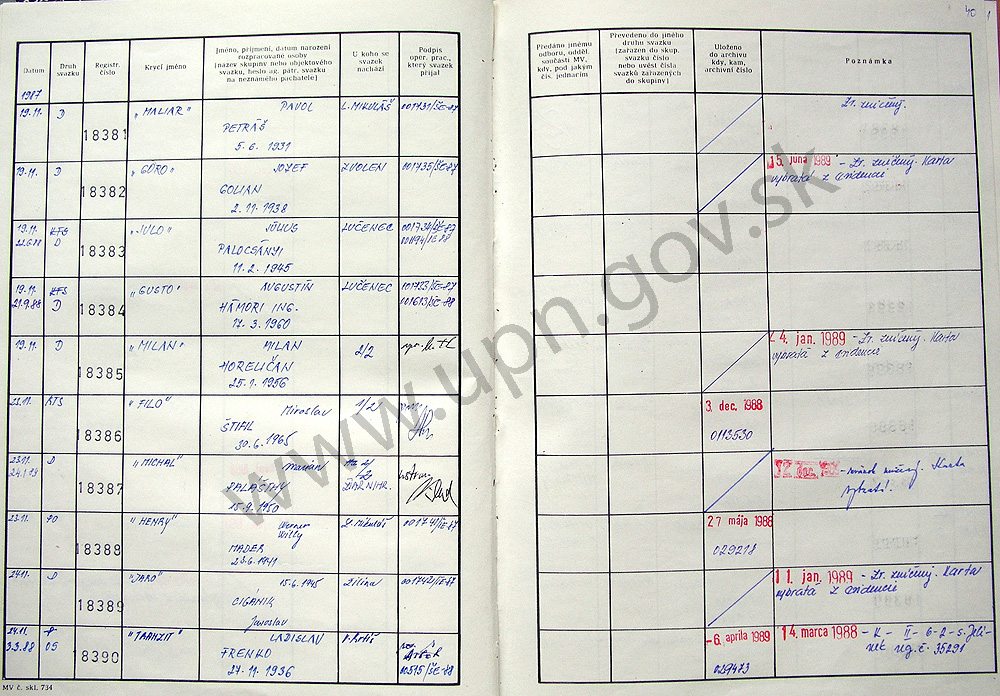 40 1
Datum
Druh
svazku
Registr.
číslo
Krycí jméno
Jméno, příjmení, datum narození
rozpracované osoby
[název skupiny nebo objektového
svazku, heslo ag. pátr. svazku
na neznámého pachatele]
U koho se
svazek
nachází
Podpis
oper. prac.,
který svazek
přijal
Předáno jinému
odboru, odděl.
součásti MV,
kdy, pod jakým
čís. jednacím
Převedeno do jiného
druhu svazku
[zařazen do skup.
svazku číslo
nebo uvést čísla
svazků zařazených
do skupiny]
Uloženo
do archivu
kdy, kam,
archivní číslo
Poznámka
1987
19.11. D 18381 "MALIAR" PAVOL L. MIKULÁŠ 001731/ŠE-87
PETRÁŠ
5.6. 1931
Zv. zničený.
19.11. D 18382 "GÚRO" JOZEF ZVOLEN 001735/ŠE-87
GOLIAN
2.11.1938
15. júna 1989 - Zv. zničený. Karta
vybratá z evidencie
19.11. KTS 18383 "JULO" JÚLIUS LUČENEC 001734/ŠE-87
D 001194/ŠE-88
PALOCSÁNYI
11.2.1945
19.11. KTS 18384 "GUSTO" AUGUSTÍN LUČENEC 001723/ŠE-87
21.9.88 D 001613/ŠE-88
HÁMORI ING.
17.3.1960
19.11. D 18385 "MILAN" MILAN 2/2
HORELIČAN
25.1.1956
4. jan. 1989 - Zv. zničený. Karta
vybratá z evidencie
23.11. KTS 18386 "FILO" Miroslav 1/2
ŠTIFIL
30.6.1965
3. dec. 1988
0113530
23.11. D 18387 "MICHAL" Marián
PALÁSTHY
15.9.1950
zväzok zničený. Karta
vybratá.
23.11. PO 18388 "HENRY" Werner L. Mikuláš 001741/ŠE-87
Willy
MADER
23.6.1941
27 mája 1988
029218
24.11. D 18389 "JARO" 15.6.1945 Žilina 001742/ŠE-87
CIGÁNIK
Jaroslav
11. jan. 1989 - Zv. zničený. Karta
vybratá z evidencie
24.11. P 18390 "TRANZIT" LADISLAV
3.3.88 OS
FRENKO
27.11.1936 00515/ŠE-88
-6. apríla 1989
029473
14. marca 1988 - K - II - 6-2-s. Jeli-
nek reg. č. 35291
MV č. skl. 734
www.upn.gov.sk